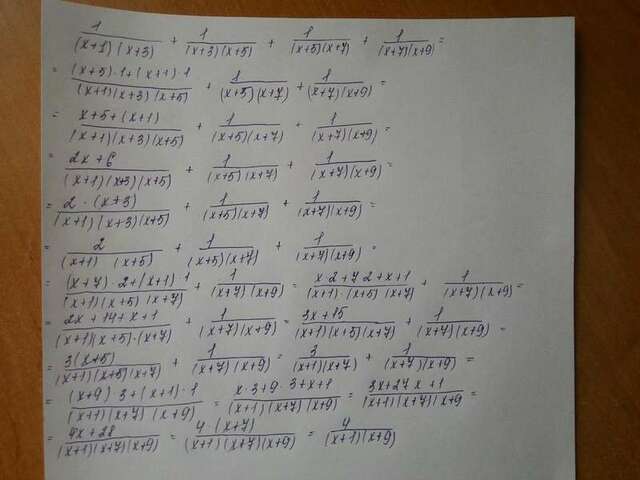 1/((x+1)(x+3)) + 1/((x+3)(x+5)) + 1/((x+5)(x+7)) + 1/((x+7)(x+9)) =
= ((x+5)·1+(x+1)·1)/((x+1)(x+3)(x+5)) + 1/((x+5)(x+7)) + 1/((x+7)(x+9)) =
= (x+5+(x+1))/((x+1)(x+3)(x+5)) + 1/((x+5)(x+7)) + 1/((x+7)(x+9)) =
= (2x+6)/((x+1)(x+3)(x+5)) + 1/((x+5)(x+7)) + 1/((x+7)(x+9)) =
= (2·(x+3))/((x+1)(x+3)(x+5)) + 1/((x+5)(x+7)) + 1/((x+7)(x+9)) =
= 2/((x+1)(x+5)) + 1/((x+5)(x+7)) + 1/((x+7)(x+9)) =
= ((x+7)·2+(x+1)·1)/((x+1)(x+5)(x+7)) + 1/((x+7)(x+9)) = (x·2+7·2+x+1)/((x+1)·(x+5)(x+7)) + 1/((x+7)(x+9)) =
= (2x+14+x+1)/((x+1)(x+5)·(x+7)) + 1/((x+7)(x+9)) = (3x+15)/((x+1)(x+5)(x+7)) + 1/((x+7)(x+9)) =
= (3(x+5))/((x+1)(x+5)(x+7)) + 1/((x+7)(x+9)) = 3/((x+1)(x+7)) + 1/((x+7)(x+9)) =
= ((x+9)·3+(x+1)·1)/((x+1)(x+7)(x+9)) = (x·3+9·3+x+1)/((x+1)(x+7)(x+9)) = (3x+27x+1)/((x+1)(x+7)(x+9)) =
= (4x+28)/((x+1)(x+7)(x+9)) = (4·(x+7))/((x+1)(x+7)(x+9)) = 4/((x+1)(x+9))